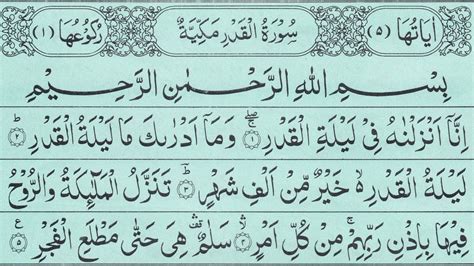 اٰيَاتُهَا (٥) سُوْرَةُ الْقَدْرِ مَكِّيَّةٌ رُكُوْعُهَا (١)
بِسْمِ اللهِ الرَّحْمٰنِ الرَّحِيْمِ
اِنَّآ اَنْزَلْنٰهُ فِيْ لَيْلَةِ الْقَدْرِ ۚۖ ﴿١﴾ وَمَآ اَدْرٰىكَ مَا لَيْلَةُ الْقَدْرِ ؕ ﴿٢﴾
لَيْلَةُ الْقَدْرِ ۙ خَيْرٌ مِّنْ اَلْفِ شَهْرٍ ؕ ﴿٣﴾ تَنَزَّلُ الْمَلٰٓئِكَةُ وَالرُّوْحُ
فِيْهَا بِاِذْنِ رَبِّهِمْ ۚ مِنْ كُلِّ اَمْرٍ ۙ ﴿٤﴾ سَلٰمٌ ۛ هِيَ حَتّٰى مَطْلَعِ الْفَجْرِ ﴿٥﴾ ع